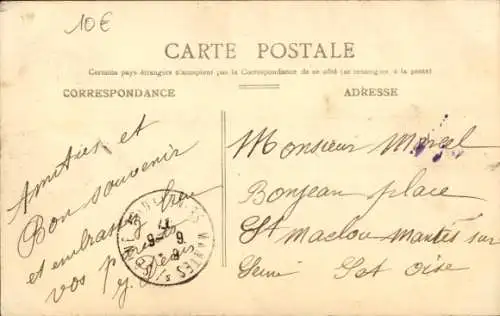 10€
CARTE POSTALE
Certains pays étrangers n'acceptent pas la Correspondance de ce côté (se renseigner à la poste)
CORRESPONDANCE
ADRESSE
Amitiés et
Bon souvenir
et embrassez
vos
Monsieur Marcel
Bonjean place
St Maclou Mantes sur
Seine Set Oise
MANTES